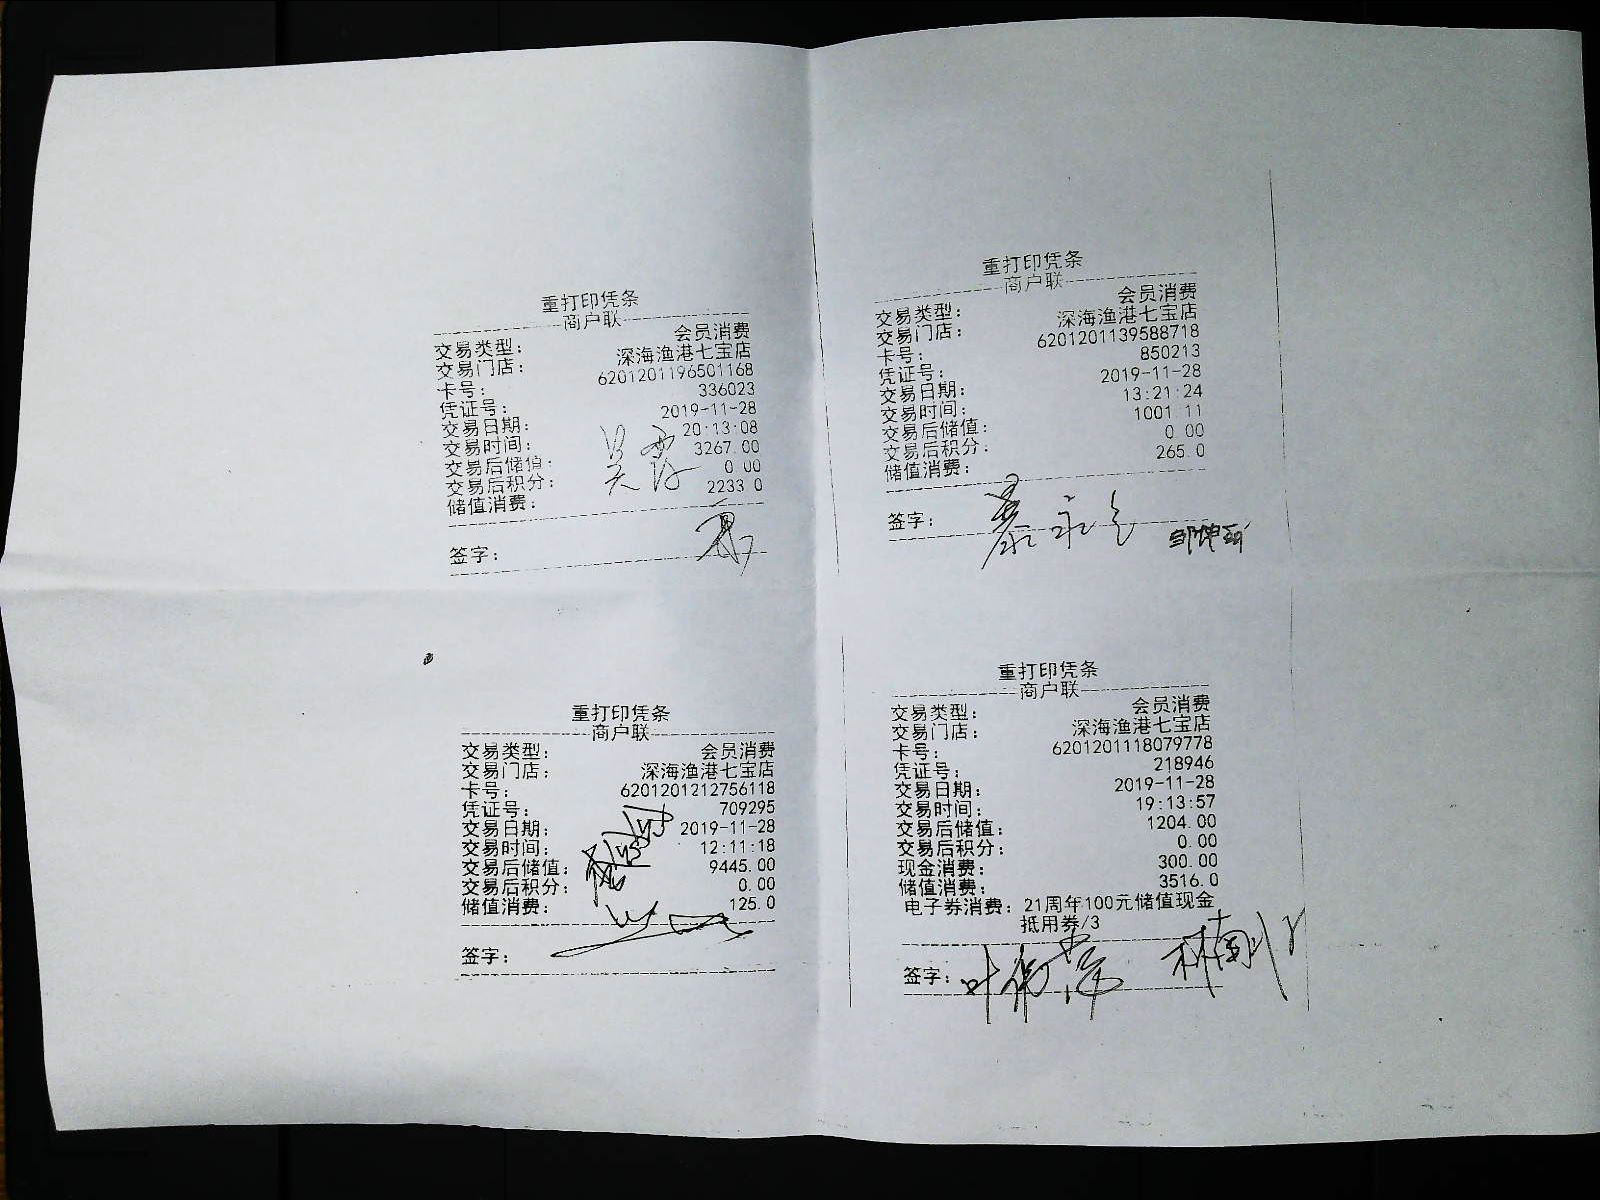 重打印凭条
商户联
交易类型： 会员消费
交易门店： 深海渔港七宝店
卡号： 6201201196501168
凭证号： 336023
交易日期： 2019-11-28
交易时间： 20:13:08
交易后储值： 3267.00
交易后积分： 0 00
储值消费： 2233 0
签字：
重打印凭条
商户联
交易类型： 会员消费
交易门店： 深海渔港七宝店
卡号： 6201201139588718
凭证号： 850213
交易日期： 2019-11-28
交易时间： 13:21:24
交易后储值： 1001 11
交易后积分： 0 00
储值消费： 265.0
签字：
重打印凭条
商户联
交易类型： 会员消费
交易门店： 深海渔港七宝店
卡号： 6201201212756118
凭证号： 709295
交易日期： 2019-11-28
交易时间： 12:11:18
交易后储值： 9445.00
交易后积分： 0.00
储值消费： 125.0
签字：
重打印凭条
商户联
交易类型： 会员消费
交易门店： 深海渔港七宝店
卡号： 6201201118079778
凭证号： 218946
交易日期： 2019-11-28
交易时间： 19:13:57
交易后储值： 1204.00
交易后积分： 0.00
现金消费： 300.00
储值消费： 3516.0
电子券消费：21周年100元储值现金
抵用券/3
签字：